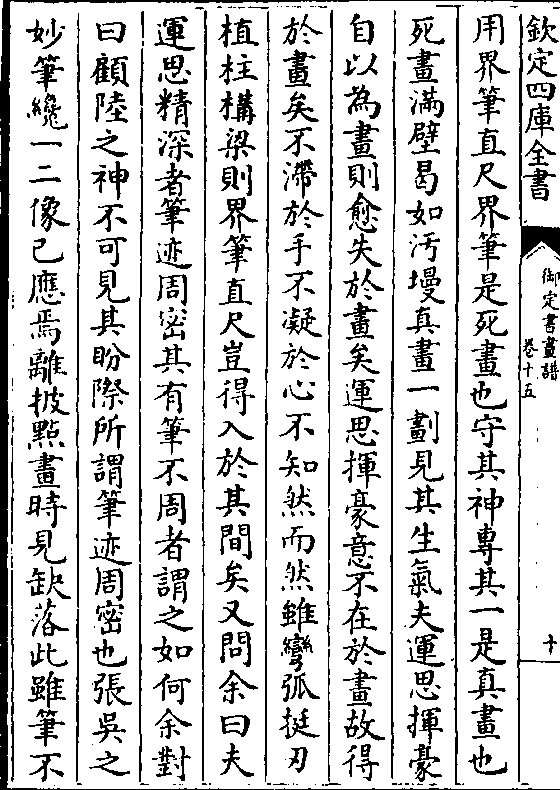 欽定四庫全書
御定書畫譜
卷十五
十
用界筆直尺界筆是死畫也守其神專其一是真畫也
死畫滿壁曷如汚墁真畫一劃見其生氣夫運思揮豪
自以為畫則愈失於畫矣運思揮豪意不在於畫故得
於畫矣不滯於手不凝於心不知然而然雖彎弧挺刃
植柱構梁則界筆直尺豈得入於其間矣又問余曰夫
運思精深者筆迹周密其有筆不周者謂之如何余對
曰顧陸之神不可見其盼際所謂筆迹周密也張吳之
妙筆纔一二像已應焉離披點畫時見缺落此雖筆不